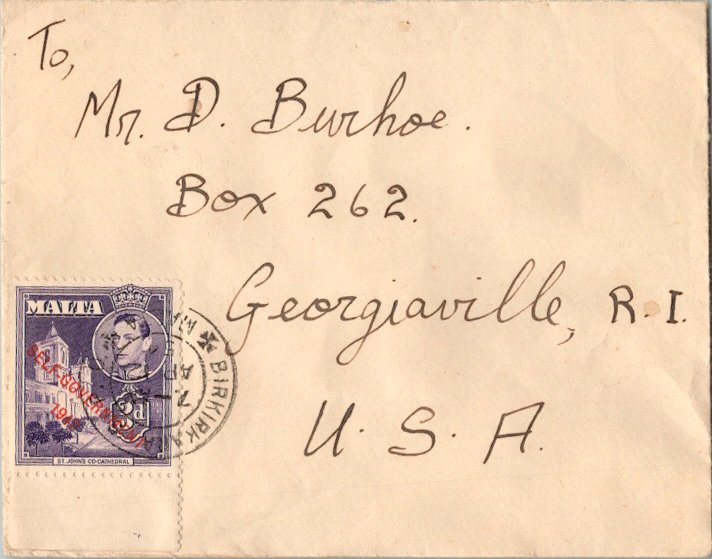 To,
Mr. D. Burhoe.
Box 262.
Georgiaville, R. I.
U. S. A.
MALTA
SELF-GOVERNMENT
ST. JOHN'S CO-CATHEDRAL
BIRKIRKARA
AP